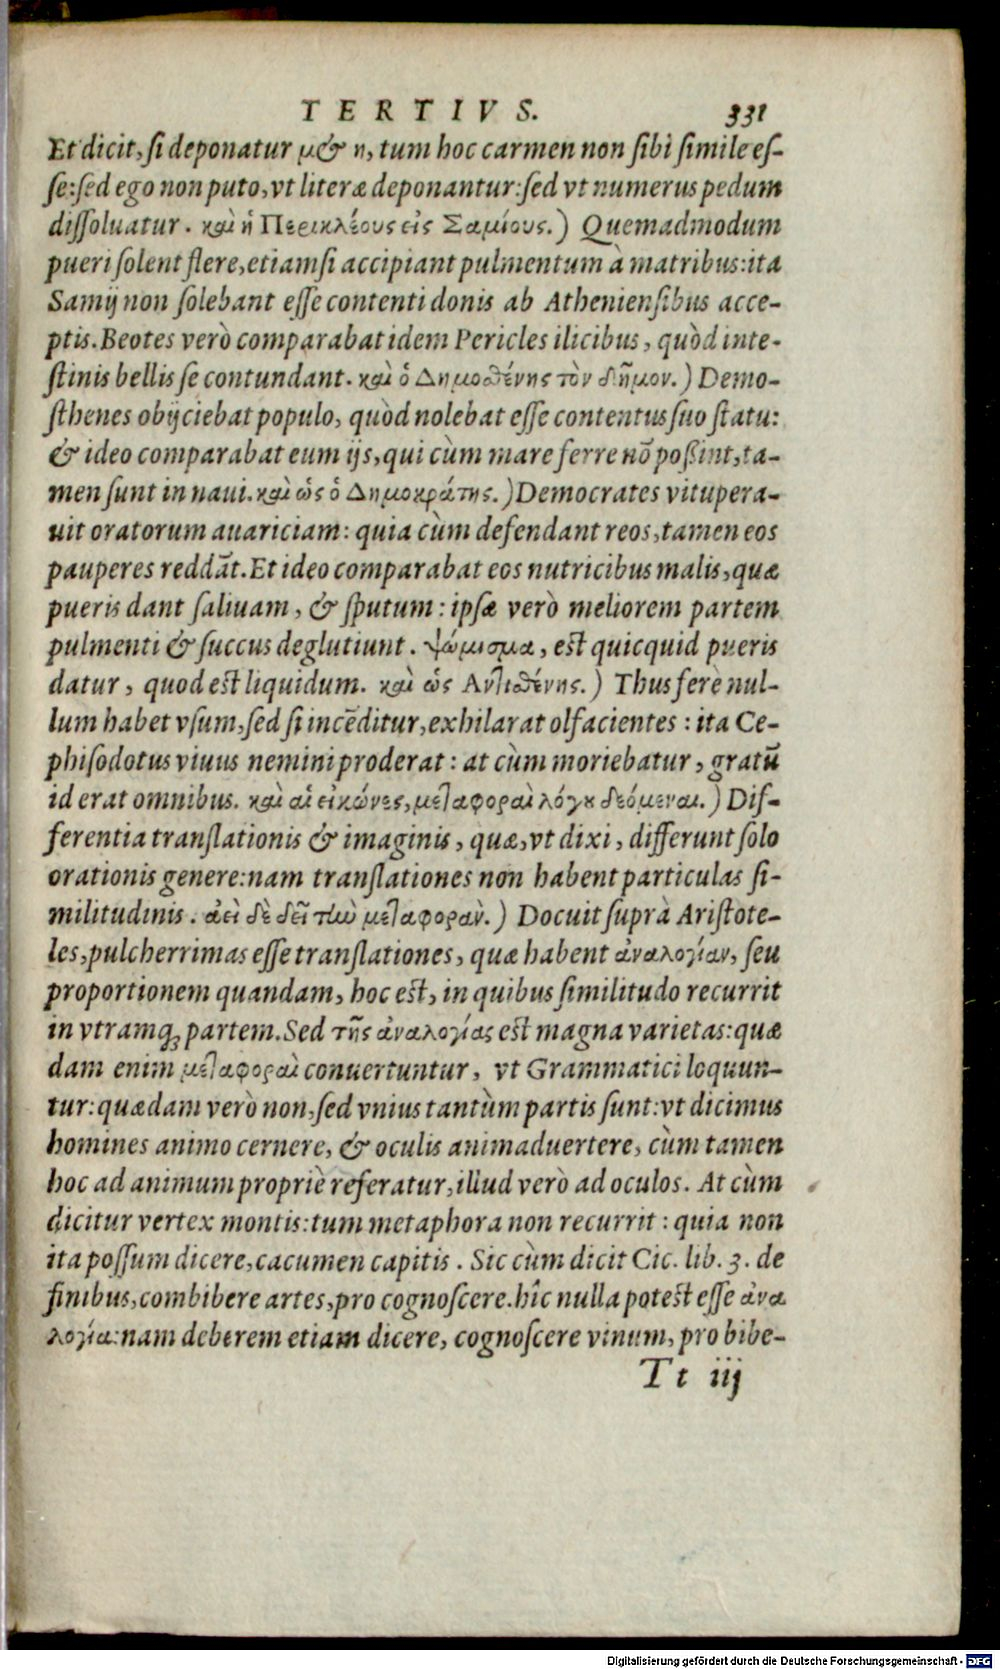 TERTIVS. 331
Et dicit, si deponatur μ & η, tum hoc carmen non sibi simile es-
se: sed ego non puto, vt literæ deponantur: sed vt numerus pedum
dissoluatur. καὶ ἡ Περικλέους εἰς Σαμίους.) Quemadmodum
pueri solent flere, etiamsi accipiant pulmentum à matribus: ita
Samij non solebant esse contenti donis ab Atheniensibus acce-
ptis. Beotes verò comparabat idem Pericles ilicibus, quòd inte-
stinis bellis se contundant. καὶ ὁ Δημοσθένης τὸν δῆμον.) Demo-
sthenes obijciebat populo, quòd nolebat esse contentus suo statu:
& ideo comparabat eum ijs, qui cùm mare ferre nõ possint, ta-
men sunt in naui. καὶ ὡς ὁ Δημοκράτης.) Democrates vitupera-
uit oratorum auariciam: quia cùm defendant reos, tamen eos
pauperes reddãt. Et ideo comparabat eos nutricibus malis, quæ
pueris dant saliuam, & sputum: ipsæ verò meliorem partem
pulmenti & succus deglutiunt. ψώμισμα, est quicquid pueris
datur, quod est liquidum. καὶ ὡς Ἀντισθένης.) Thus ferè nul-
lum habet vsum, sed si incẽditur, exhilarat olfacientes: ita Ce-
phisodotus viuus nemini proderat: at cùm moriebatur, gratũ
id erat omnibus. καὶ αἱ εἰκώνες, μεταφοραὶ λόγȣ δεόμεναι.) Dif-
ferentia translationis & imaginis, quæ, vt dixi, differunt solo
orationis genere: nam translationes non habent particulas si-
militudinis. ἀεὶ δὲ δεῖ τὴν μεταφορὰν.) Docuit suprà Aristote-
les, pulcherrimas esse translationes, quæ habent ἀναλογίαν, seu
proportionem quandam, hoc est, in quibus similitudo recurrit
in vtramq; partem. Sed τῆς ἀναλογίας est magna varietas: quæ
dam enim μεταφοραὶ conuertuntur, vt Grammatici loquun-
tur: quædam verò non, sed vnius tantùm partis sunt: vt dicimus
homines animo cernere, & oculis animaduertere, cùm tamen
hoc ad animum propriè referatur, illud verò ad oculos. At cùm
dicitur vertex montis: tum metaphora non recurrit: quia non
ita possum dicere, cacumen capitis. Sic cùm dicit Cic. lib. 3. de
finibus, combibere artes, pro cognoscere. hîc nulla potest esse ἀνα
λογία: nam deberem etiam dicere, cognoscere vinum, pro bibe-
Tt iij
Digitalisierung gefördert durch die Deutsche Forschungsgemeinschaft - DFG